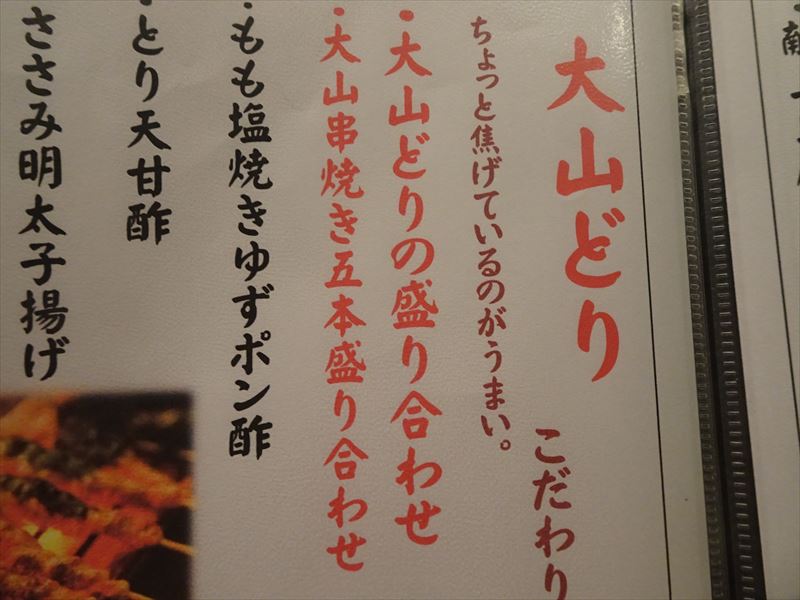 大山どり
こだわり
ちょっと焦げているのがうまい。
・大山どりの盛り合わせ
・大山串焼き五本盛り合わせ
・もも塩焼きゆずポン酢
・とり天甘酢
ささみ明太子揚げ